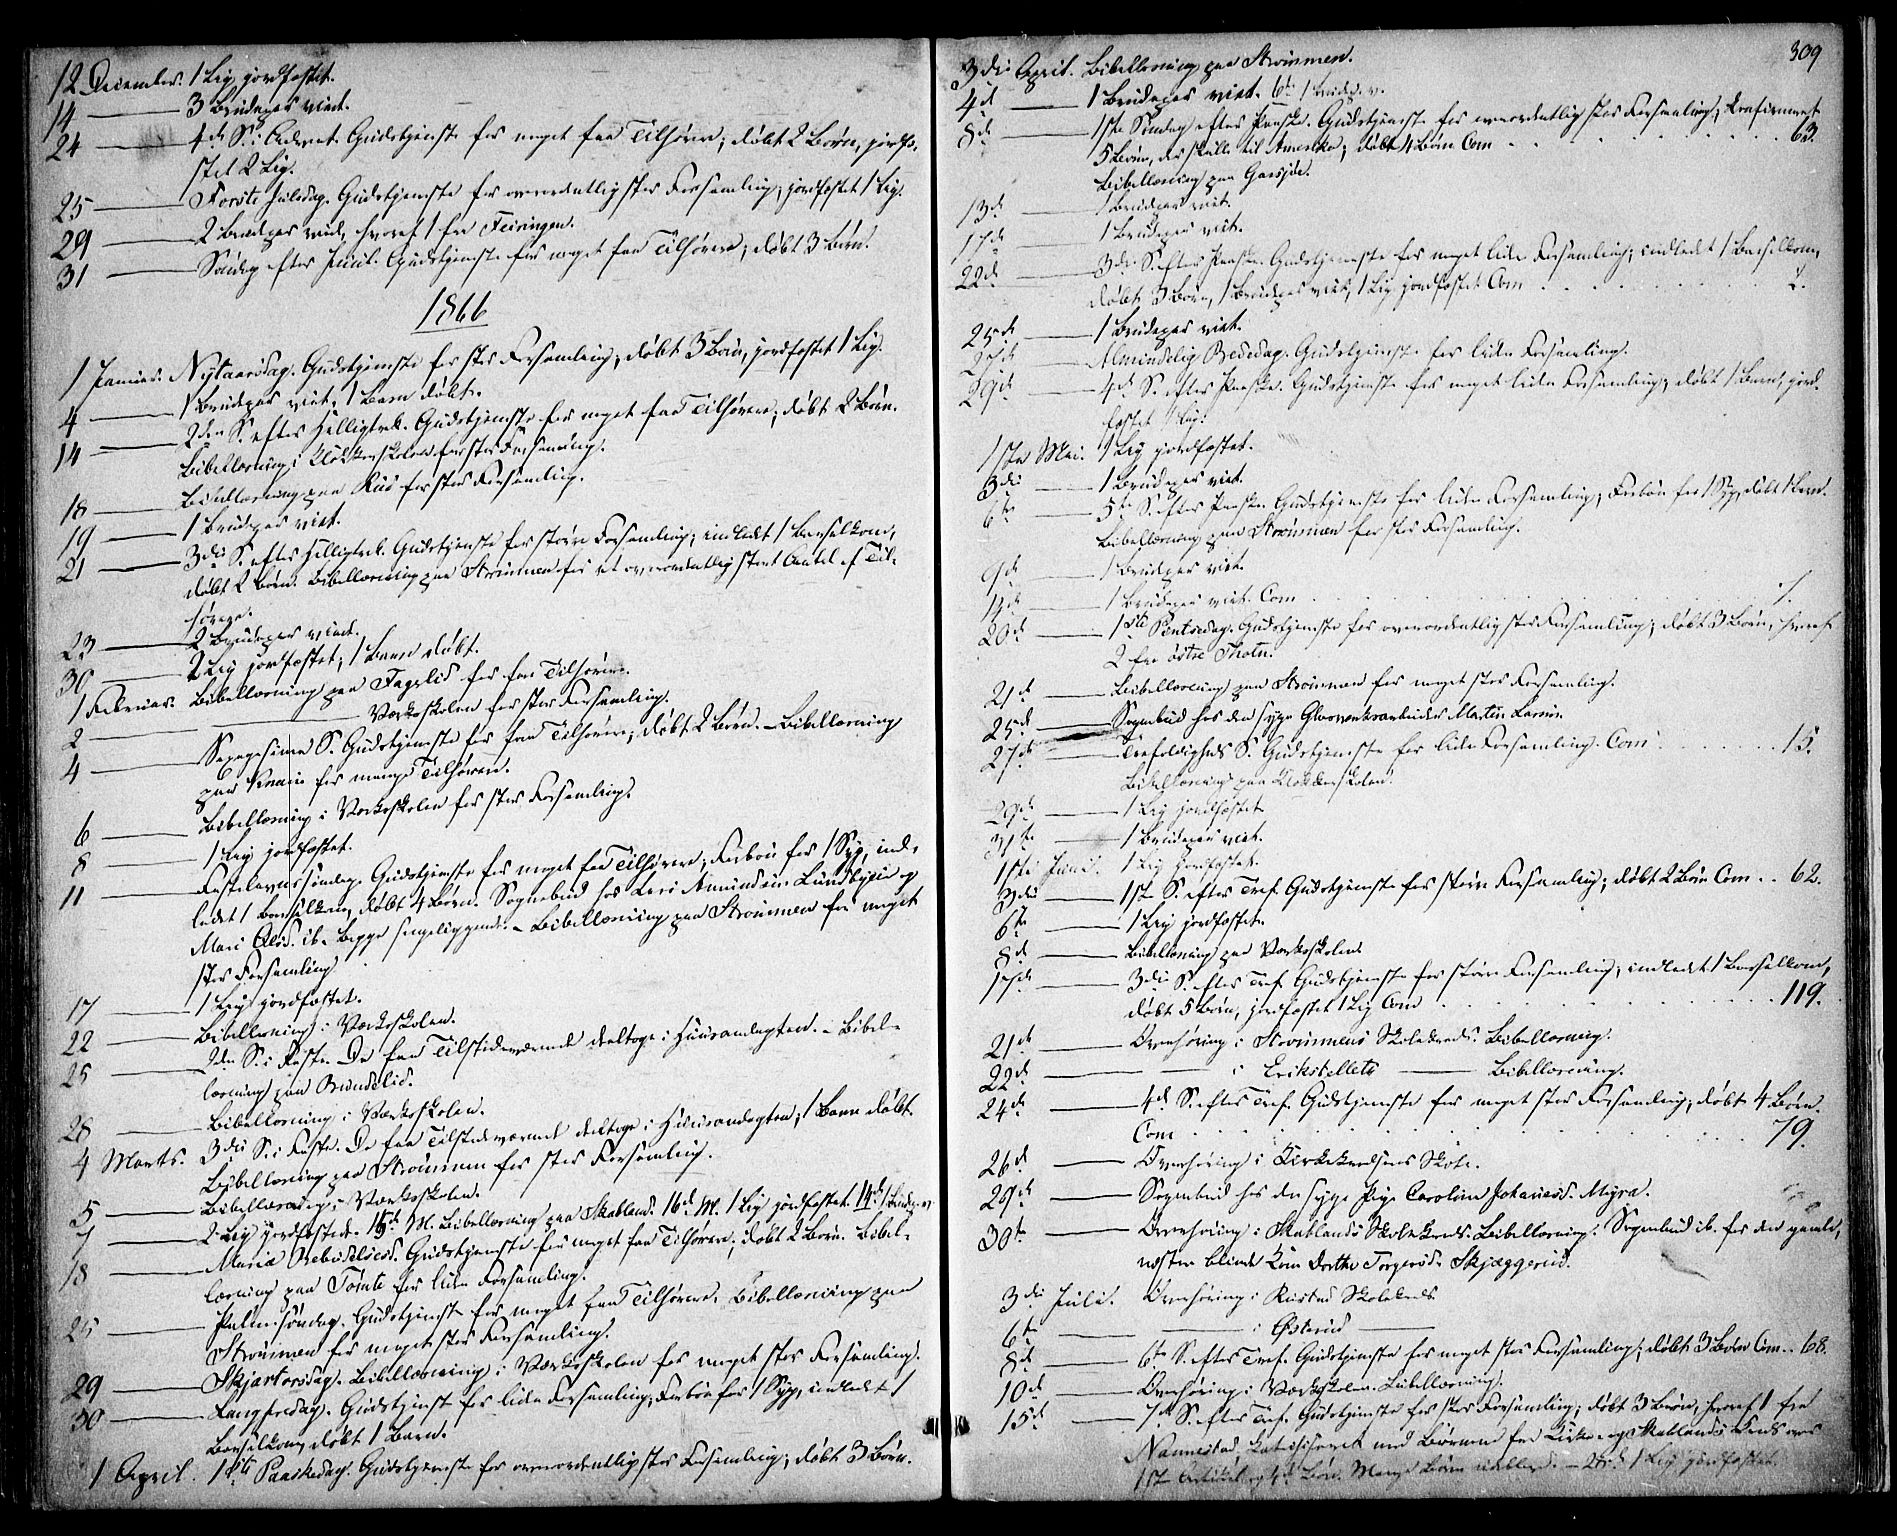 12 December. 1 Lig jordfæstet.
14 — 3 Brudepar viet.
24 — 4de S. i Advent. Gudstjeneste for meget faa Tilhørere; døbt 2 Børn, jordfæ-
stet 2 Lig.
25 — Første Juledag. Gudstjeneste for overordentlig stor Forsamling; jordfæstet 1 Lig.
29 — 2 Brudepar viet, hvoraf 1 fra Feiringen.
31 — Søndag efter Juul. Gudstjeneste for meget faa Tilhørere; døbt 3 Børn.
1866
1 Januar. Nytaarsdag. Gudstjeneste for stor Forsamling; døbt 3 Børn, jordfæstet 1 Lig.
4 — 1 Brudepar viet, 1 Barn døbt.
14 — 2den S. efter Helligtrek. Gudstjeneste for meget faa Tilhørere; døbt 2 Børn.
Bibellæsning i Klokkerskolen for stor Forsamling.
18 — Bibellæsning paa Rud for stor Forsamling.
19 — 1 Brudepar viet.
21 — 3die S. efter Helligtrek. Gudstjeneste for større Forsamling; indledt 1 Barselkone,
døbt 2 Børn. Bibellæsning paa Strømmen for et overordentlig stort Antal af Til-
hørere.
23 — 2 Brudepar viet.
30 — 2 Lig jordfæstet; 1 Barn døbt.
1 Februar. Bibellæsning paa Fagerlid for faa Tilhørere.
2 — — Værksskolen for stor Forsamling.
4 — Sexagesima S. Gudstjeneste for faa Tilhørere; døbt 2 Børn. – Bibellæsning
paa Knai for mange Tilhørere.
6 — Bibellæsning i Værksskolen for stor Forsamling.
8 — 1 Lig jordfæstet.
11 — Fastelavnssøndag. Gudstjeneste for meget faa Tilhørere; Forbøn for 1 Syg, ind-
ledet 1 Barselkone, døbt 4 Børn. Sognebud hos Lars Amundsen Lundbyeie og
Mari Olsd. ib. begge sengeliggende. – Bibellæsning paa Strømmen for meget
stor Forsamling.
17 — 1 Lig jordfæstet.
22 — Bibellæsning i Værksskolen.
25 — 2den S. i Faste. De faa Tilstedeværende deeltoge i Huusandagten. – Bibel-
læsning paa Brundslid.
28 — Bibellæsning i Værksskolen.
4 Marts. 3die S. i Faste. De faa Tilstedeværende deeltoge i Huusandagten; 1 Barn døbt.
Bibellæsning paa Strømmen for stor Forsamling.
5 — Bibellæsning i Værksskolen.
7 — 2 Lig jordfæstede. 15de M. Bibellæsning paa Skabland. 16de M. 1 Lig jordfæstet. 14de 1 Brudep. v.
18 — Mariæ Bebudelsesd. Gudstjeneste for meget faa Tilhørere; døbt 2 Børn. Bibel-
læsning paa Tømte for liden Forsamling.
25 — Palmesøndag. Gudstjeneste for meget faa Tilhørere. Bibellæsning paa
Strømmen for meget stor Forsamling.
29 — Skjærtorsdag. Bibellæsning i Værksskolen for meget stor Forsamling.
30 — Langfredag. Gudstjeneste for liden Forsamling; Forbøn for 1 Syg, indledet 1
Barselkone, døbt 1 Barn.
1 April. 1ste Paaskedag. Gudstjeneste for overordentlig stor Forsamling; døbt 3 Børn.
309
3die April. Bibellæsning paa Strømmen.
4de — 1 Brudepar viet. 6te 1 Brudep. v.
8de — 1ste Søndag efter Paaske. Gudstjeneste for overordentlig stor Forsamling; Konfirmeret
5 Børn, der skulle til Amerika; døbt 4 Børn Com . . . 63.
Bibellæsning paa Garsjøe.
13de — 1 Brudepar viet.
17de — 1 Brudepar viet.
22de — 3die S. efter Paaske. Gudstjeneste for meget liden Forsamling; indledet 1 Barselkone,
døbt 3 Børn, 1 Brudepar viet, 1 Lig jordfæstet Com . . . 2.
25de — 1 Brudepar viet.
27de — Almindelig Bededag. Gudstjeneste for liden Forsamling.
29de — 4de S. efter Paaske. Gudstjeneste for meget liden Forsamling; døbt 1 Barn, jord-
fæstet 1 Lig.
1ste Mai. 1 Lig jordfæstet.
3die — 1 Brudepar viet.
6te — 5te S. efter Paaske. Gudstjeneste for liden Forsamling; Forbøn for 1 Syg, døbt 1 Barn.
Bibellæsning paa Strømmen for stor Forsamling.
9de — 1 Brudepar viet.
14de — 1 Brudepar viet. Com . . . 1.
20de — 1ste Pintsedag. Gudstjeneste for overordentlig stor Forsamling; døbt 3 Børn, hvoraf
2 fra østre Thoten.
21de — Bibellæsning paa Strømmen for meget stor Forsamling.
25de — Sognebud hos den syge Glasværksarbeider Martin Larsen.
27de — Trefoldigheds S. Gudstjeneste for liden Forsamling. Com . . . 15.
Bibellæsning paa Klokkerskolen.
29de — 1 Lig jordfæstet
31te — 1 Brudepar viet.
1ste Juni. 1 Lig jordfæstet.
3die — 1ste S. efter Tref. Gudstjeneste for større Forsamling; døbt 2 Børn Com . . 62.
6te — 1 Lig jordfæstet.
8de — Bibellæsning paa Værksskolen.
17de — 3die S. efter Tref. Gudstjeneste for større Forsamling; indledet 1 Barselkone,
døbt 5 Børn, jordfæstet 1 Lig Com . . . 119.
21de — Overhøring i Strømmens Skolekreds. Bibellæsning.
22de — — i Erikstellets — Bibellæsning.
24de — 4de S. efter Tref. Gudstjeneste for meget stor Forsamling; døbt 4 Børn.
Com . . . 79.
26de — Overhøring i Kirkekredsens Skole.
29de — Sognebud hos den syge Pige Caroline Johanesd. Myra.
30te — Overhøring i Skablands Skolekreds. Bibellæsning. Sognebud ib. for den gamle,
næsten blinde Kone Dorthe Torgersd. Skjæggerud.
3die Juli. Overhøring i Rustad Skolekreds.
6te — — i Østerud —
8de — 6te S. efter Tref. Gudstjeneste for meget stor Forsamling; døbt 3 Børn Com . . 68.
10de — Overhøring i Værksskolen. Bibellæsning.
15de — 7de S. efter Tref. Gudstjeneste for stor Forsamling; døbt 3 Børn, hvoraf 1 fra
Nannestad. Katechiseret med Børnene fra Kirke og Skablands Kreds over
1ste Artikel og 4de Bøn. Mange Børn udeblev. – 1 Lig jordfæstet.